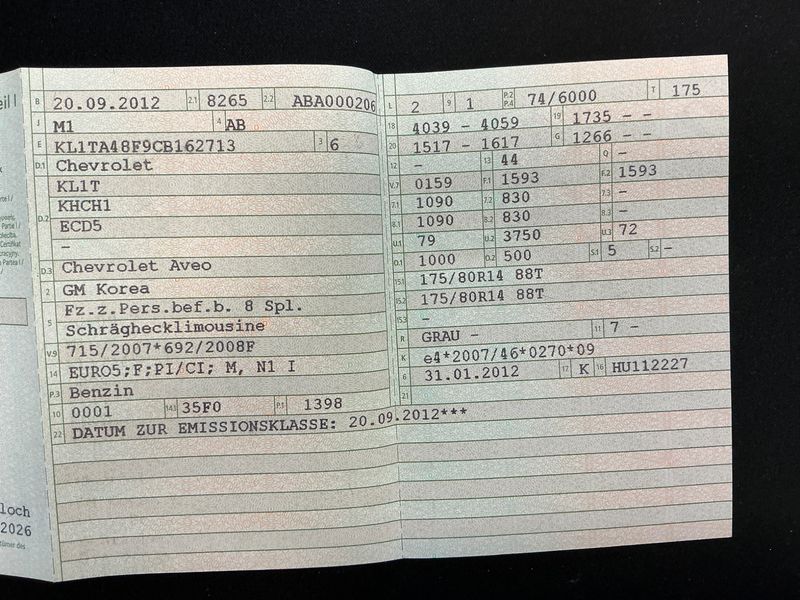 eil I
B 20.09.2012 2.1 8265 2.2 ABA000206
J M1 4 AB
E KL1TA48F9CB162713 3 6
D.1 Chevrolet
KL1T
D.2 KHCH1
ECD5
–
D.3 Chevrolet Aveo
2 GM Korea
5 Fz.z.Pers.bef.b. 8 Spl.
Schräghecklimousine
V.9 715/2007*692/2008F
14 EURO5;F;PI/CI; M, N1 I
P.3 Benzin
10 0001 14.1 35F0 P.1 1398
22 DATUM ZUR EMISSIONSKLASSE: 20.09.2012***
L 2 9 1 P.2 P.4 74/6000 T 175
18 4039 - 4059 19 1735 - -
20 1517 - 1617 G 1266 - -
12 - 13 44 Q -
V.7 0159 F.1 1593 F.2 1593
7.1 1090 7.2 830 7.3 -
8.1 1090 8.2 830 8.3 -
U.1 79 U.2 3750 U.3 72
O.1 1000 O.2 500 S.1 5 S.2 -
15.1 175/80R14 88T
15.2 175/80R14 88T
15.3 -
R GRAU - 11 7 -
K e4*2007/46*0270*09
6 31.01.2012 17 K 16 HU112227
21
loch
2026